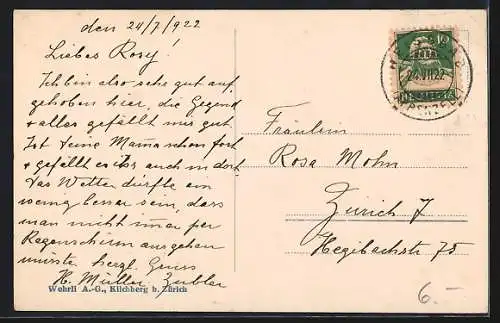 den 24/7/922
Liebes Rosy!
Ich bin also sehr gut auf
gehoben hier, die Gegend
+ alles gefällt mir gut
Ist deine Mama schon fort
+ gefällt es ihr auch in dort
Das Wetter dürfte ein
wenig besser sein, dass
man nicht immer per
Regenschirm ausgehen
müsste herzl. Gruss
H. Müller Zubler
Wehrli A.-G., Kilchberg b. Zürich
10
24.VII.22
HELVETIA
Fräulein
Rosa Mohn
Zürich 7
Hegibachstr 75
6.-